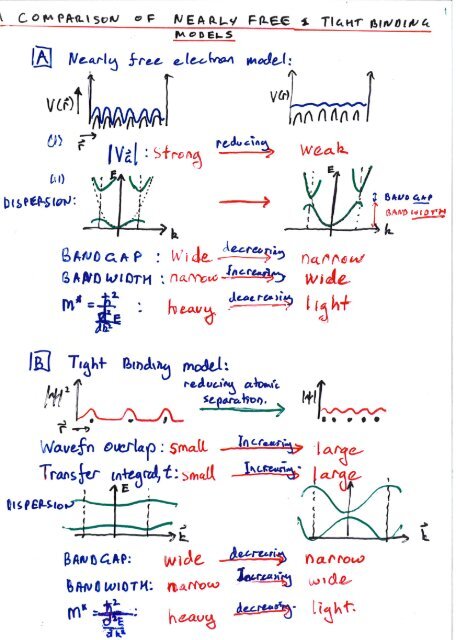 A COMPARISON OF NEARLY FREE & TIGHT BINDING
MODELS
1
A Nearly free electron model:
V(r⃗)
V(r)
(i) r⃗
|V_G⃗| : Strong reducing weak
(ii) E E
DISPERSION:
BANDGAP
BANDWIDTH
k k
BANDGAP : Wide decreasing narrow
BANDWIDTH : narrow Increasing wide
m* = ħ² / d²E/dk² : heavy decreasing light
B Tight Binding model:
|ψ|² reducing atomic separation. |ψ|
r⃗
Wavefn overlap : small Increasing large
Transfer integral, t : small Increasing large
DISPERSION E
k⃗ k⃗
BANDGAP: wide decreasing narrow
BANDWIDTH: narrow Increasing wide
m* = ħ² / d²E/dk² : heavy decreasing light.